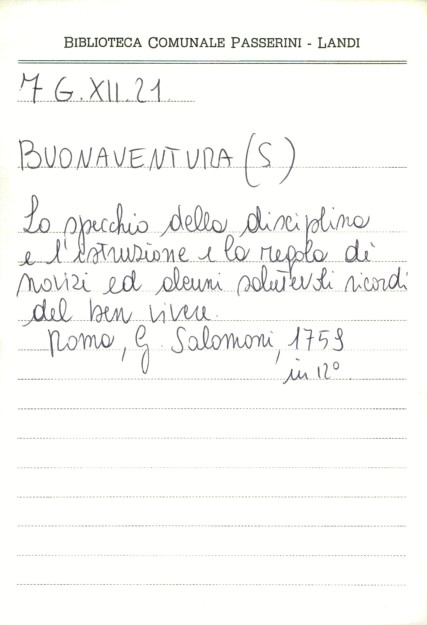 BIBLIOTECA COMUNALE PASSERINI - LANDI
7 G.XII.21.
BUONAVENTURA (S)
Lo specchio della disciplina
e l'istruzione e la regola di
novizi ed alcuni salutevoli ricordi
del ben vivere.
Roma, G. Salomoni, 1759
in 12°